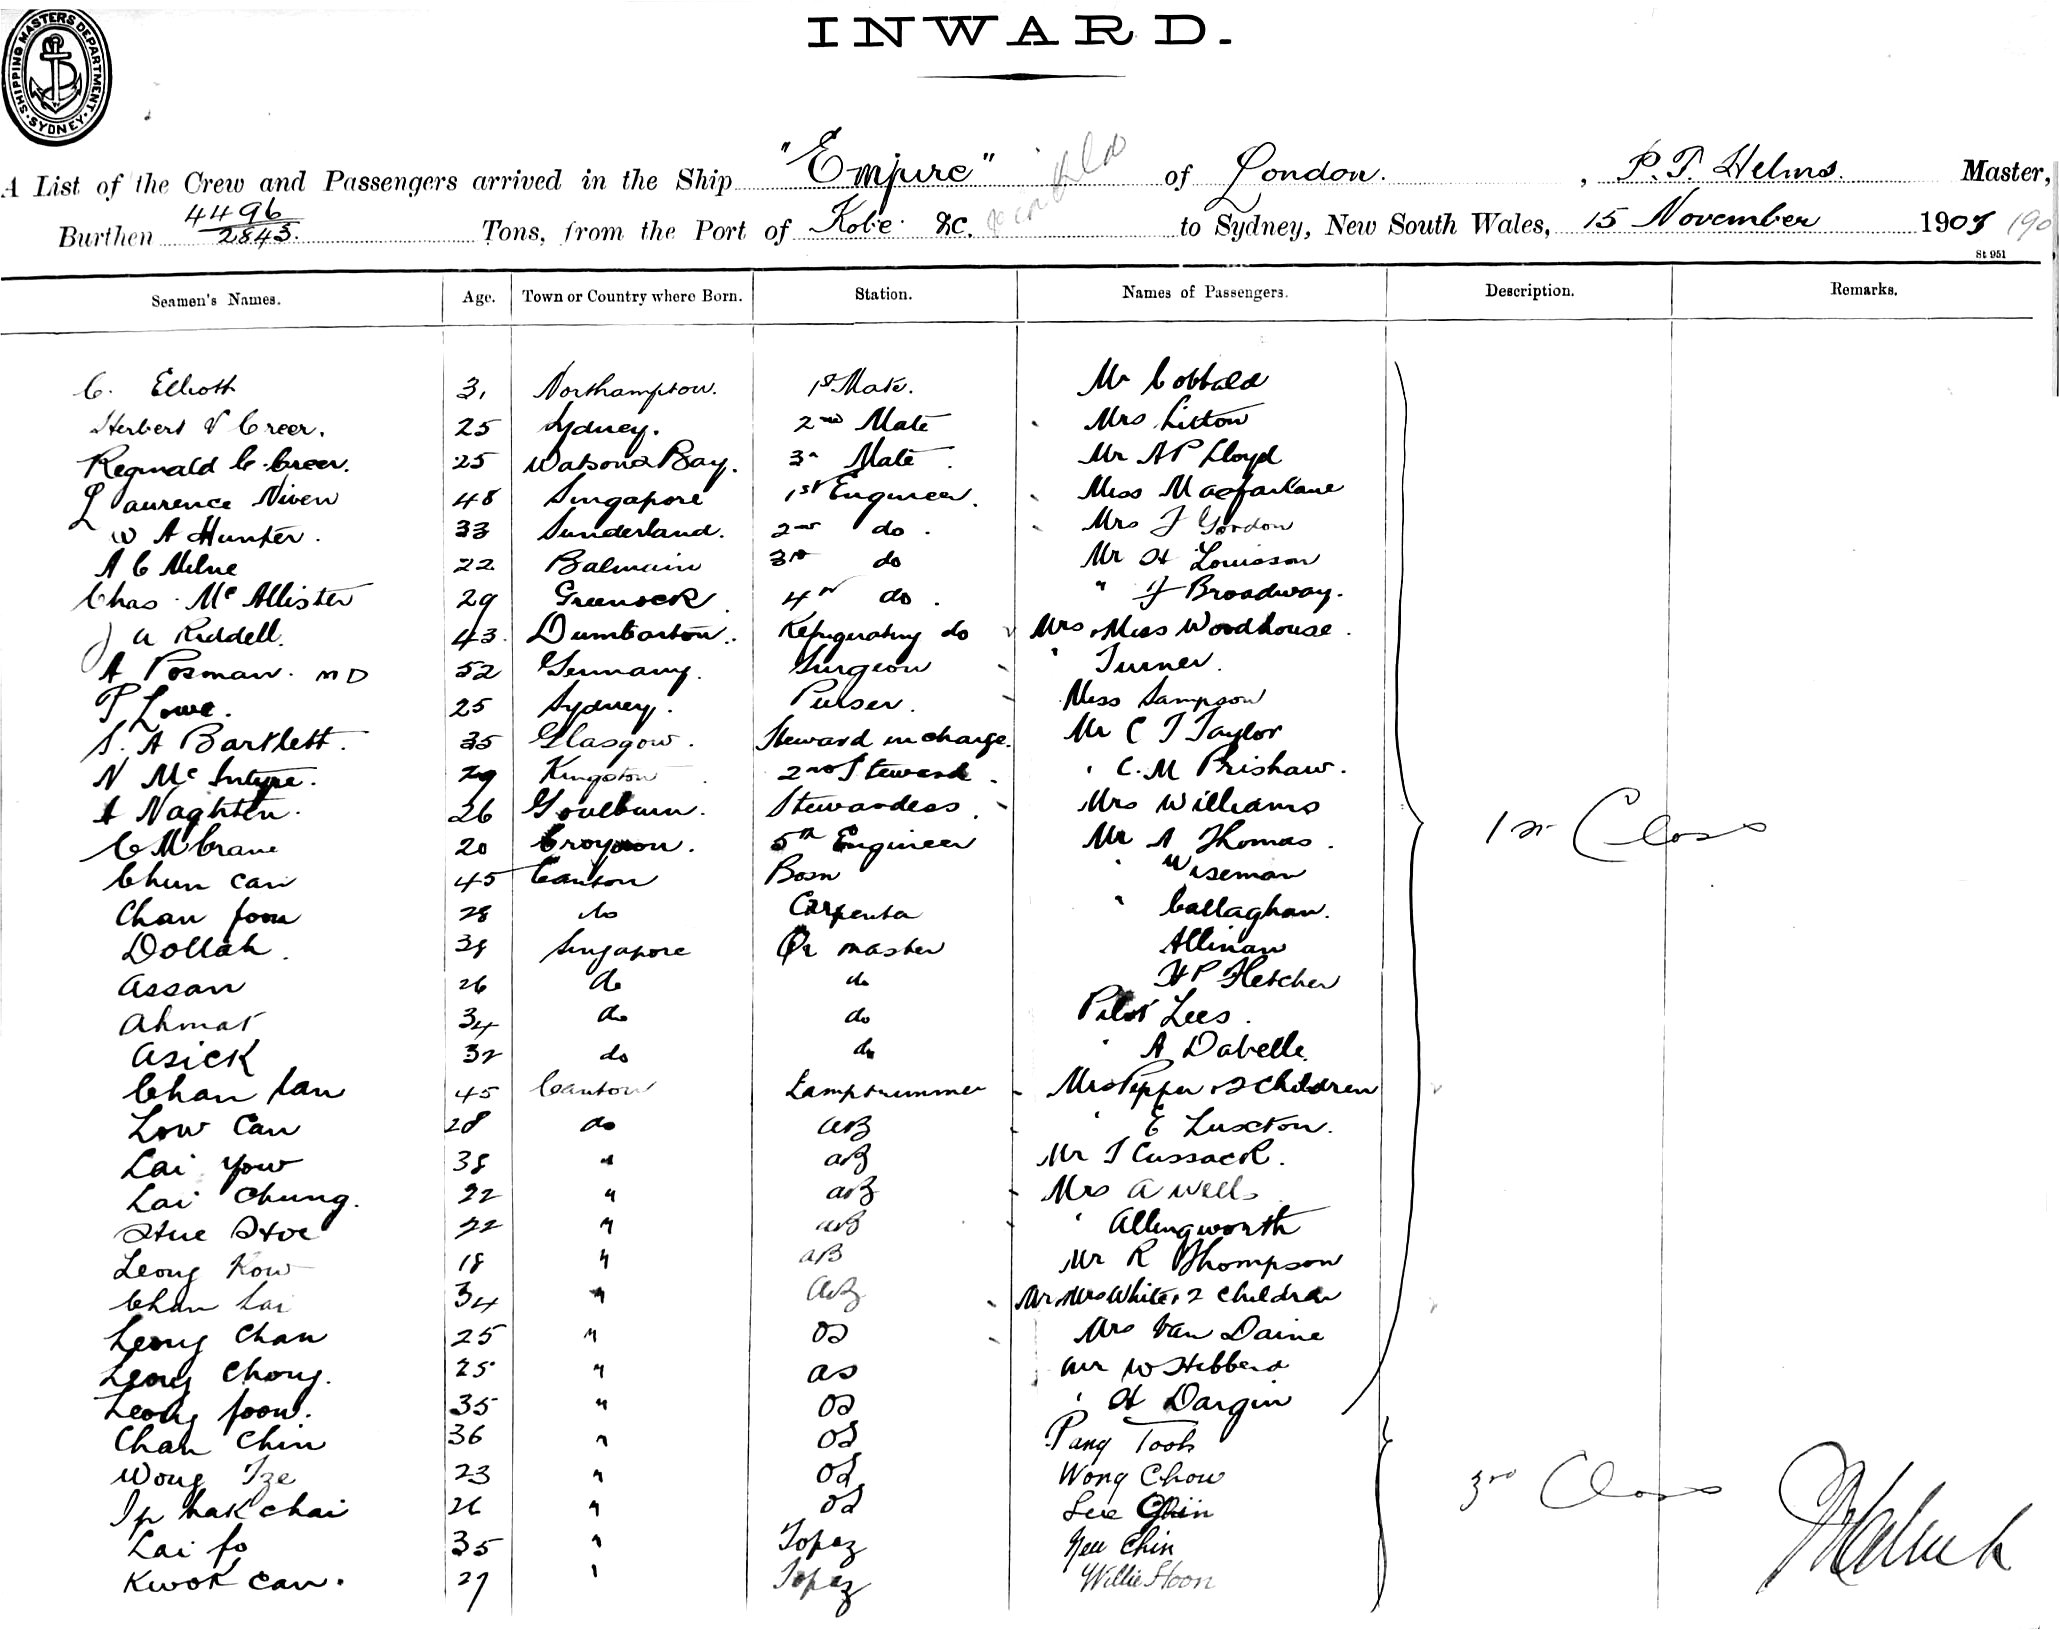 INWARD.
SHIPPING MASTERS DEPARTMENT SYDNEY
A List of the Crew and Passengers arrived in the Ship "Empire" of London. , P. T. Helms. Master,
Burthen 4496/2843. Tons, from the Port of Kobe &c. to Sydney, New South Wales, 15 November 190 190
St 951
Seamen's Names. Age. Town or Country where Born. Station. Names of Passengers. Description. Remarks.
C. Elliott 31 Northampton. 1st Mate. Mr Cobbald
Herbert V Creer. 25 Sydney. 2nd Mate Mrs Litton
Reginald C. Creer. 25 Watsons Bay. 3rd Mate Mr A P Lloyd
Laurence Niven 48 Singapore 1st Engineer. Miss Macfarlane
W A Hunter. 33 Sunderland. 2nd do. Mrs J Gordon
A C Milne 22 Balmain 3rd do Mr H Louisson
Chas. McAllister 29 Greenock 4th do. " J Broadway.
J A Riddell. 43. Dumbarton. Refrigerating do Mrs & Miss Woodhouse.
A Posman. MD 52 Germany. Surgeon " Turner.
P Lowe. 25 Sydney. Purser. Miss Sampson
S. A Bartlett. 35 Glasgow. Steward in charge. Mr C T Taylor
N McIntyre. 29 Kingston 2nd Steward. " C. M Prishaw.
A Naghten. 26 Goulburn. Stewardess. Mrs Williams
C M Crane 20 Croydon. 5th Engineer Mr A Thomas. 1st Class
Chun Can 45 Canton Bosn " Wiseman
Chan foon 28 do Carpenter " Callaghan.
Dollah. 38 Singapore Qr master Allman
Assan 26 do do H P Fletcher
Ahmat 34 do do Pilot Lees.
Asick 32 do do " A Dabelle.
Chan San 45 Canton Lamptrimmer Mrs Pepper & 2 children
Low Can 28 do AB " E Luxton.
Lai Yow 38 " AB Mr J Cussack.
Lai Chung. 22 " AB Mrs A Wells
Hue Hoe 22 " AB " Allingworth
Leong Kow 18 " AB Mr R Thompson
Chan Lai 34 " AB Mr & Mrs White & 2 children
Leong Chan 25 " OS Mrs Van Daine
Leong Chong. 25 " OS Mr W Hibberd
Leong foon. 35 " OS " H Dargin
Chan Chin 36 " OS Pang Took
Wong Tze 23 " OS Wong Chow 3rd Class
Ip Mak Chai 26 " OS Lee Chin
Lai fo 35 " Topaz Neu Chin
Kwok Can. 27 " Topaz Willie Hoon